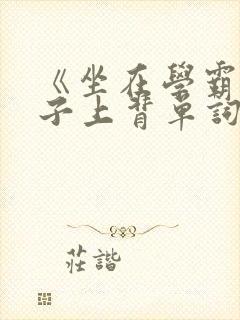 《坐在學霸
子上背單詞
莊諧